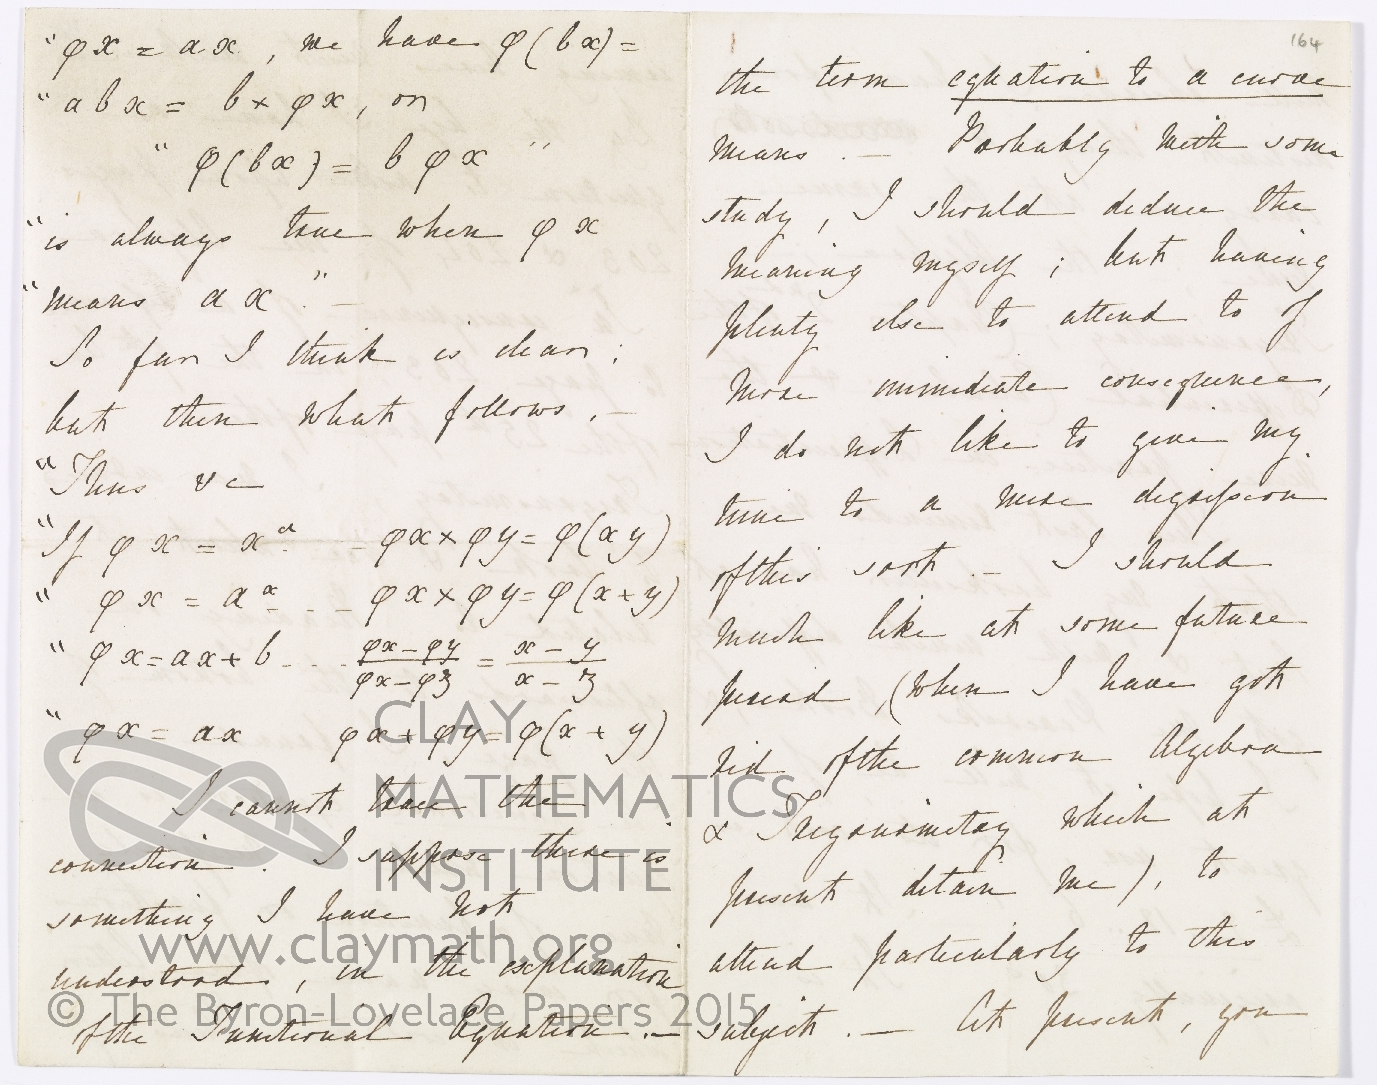 " φx = ax, we have φ(bx) =
" abx = b × φx, or
" φ(bx) = b φx "
" is always true when φx
" means ax." —
So far I think is clear;
but then what follows. —
" Thus &c
" If φx = xᵃ - - φx × φy = φ(xy)
" φx = aˣ - - - φx × φy = φ(x + y)
" φx = ax + b - - - (φx − φy)/(φx − φz) = (x − y)/(x − z)
" φx = ax φx + φy = φ(x + y)
I cannot trace the
connection. I suppose there is
something I have not
understood, in the explanation
of the Functional Equation. —
164
the term equation to a curve
means. — Probably with some
study, I should deduce the
meaning myself; but having
plenty else to attend to of
more immediate consequence,
I do not like to give my
time to a mere digression
of this sort. — I should
much like at some future
period, (when I have got
rid of the common Algebra
& Trigonometry which at
present detain me), to
attend particularly to this
subject. — At present, you
CLAY
MATHEMATICS
INSTITUTE
www.claymath.org
© The Byron-Lovelace Papers 2015